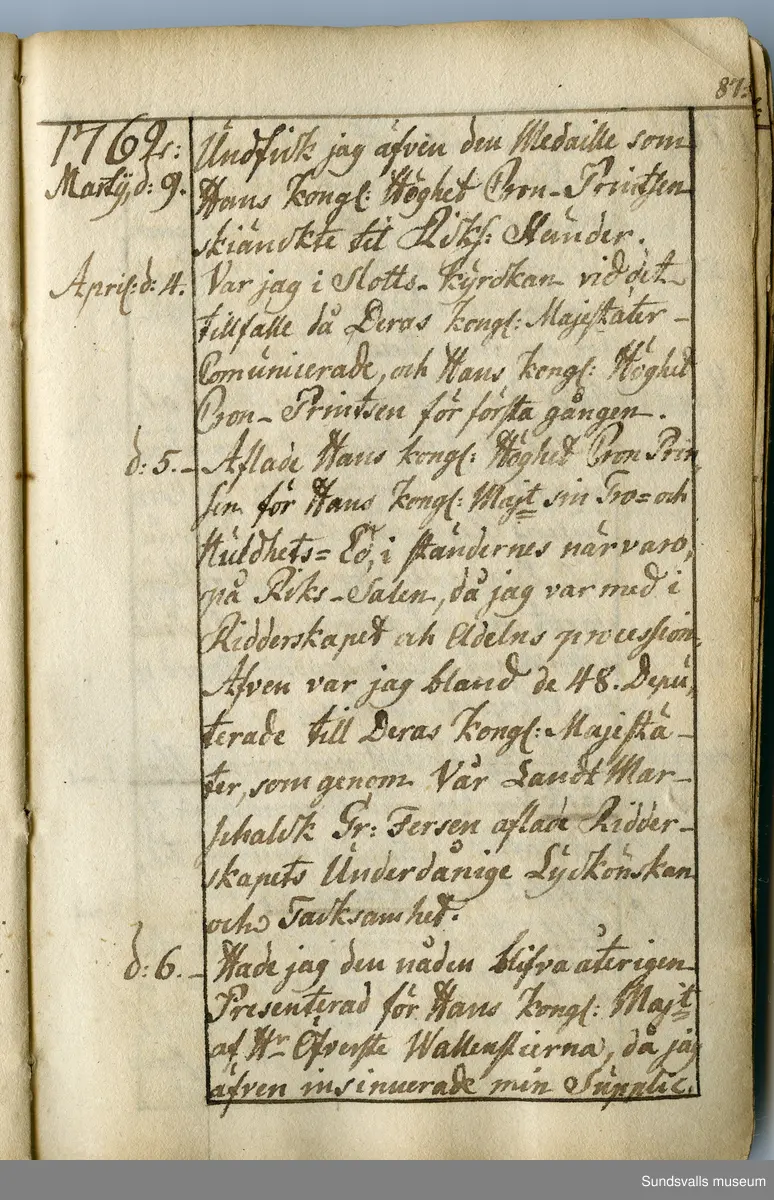 87:
1762:
Martij d: 9. Undfick jag äfven den Medaille som
Hans Kongl: Höghet Cron-Printsen
skiänckte til Riks: Ständer.
April: d: 4. Var jag i Slotts-Kyrckan vid det
tillfälle då Deras Kongl: Majestäter
Comunicerade, och Hans Kongl: Höghet
Cron-Printsen för första gången.
d: 5. Aflade Hans Kongl: Höghet Cron Prin-
sen för Hans Kongl: Majt sin Tro= och
Huldhets= Ed, i ständernes närvaro,
på Riks-Salen, då jag var med i
Ridderskapet och Adelns procession.
Äfven var jag bland de 48. Depu,
terade till Deras Kongl: Majestä-
ter, som genom Vår Landt Mar-
schalck Gr: Fersen aflade Ridder-
skapets Underdånige Lyckönskan
och Tacksamhet.
d: 6. Hade jag den nåden blifva återigen
Presenterad för Hans Kongl: Majt
af Hr Öfverste Wallenstierna, då jag
äfven insinuerade min Supplic.
Sundsvalls museum